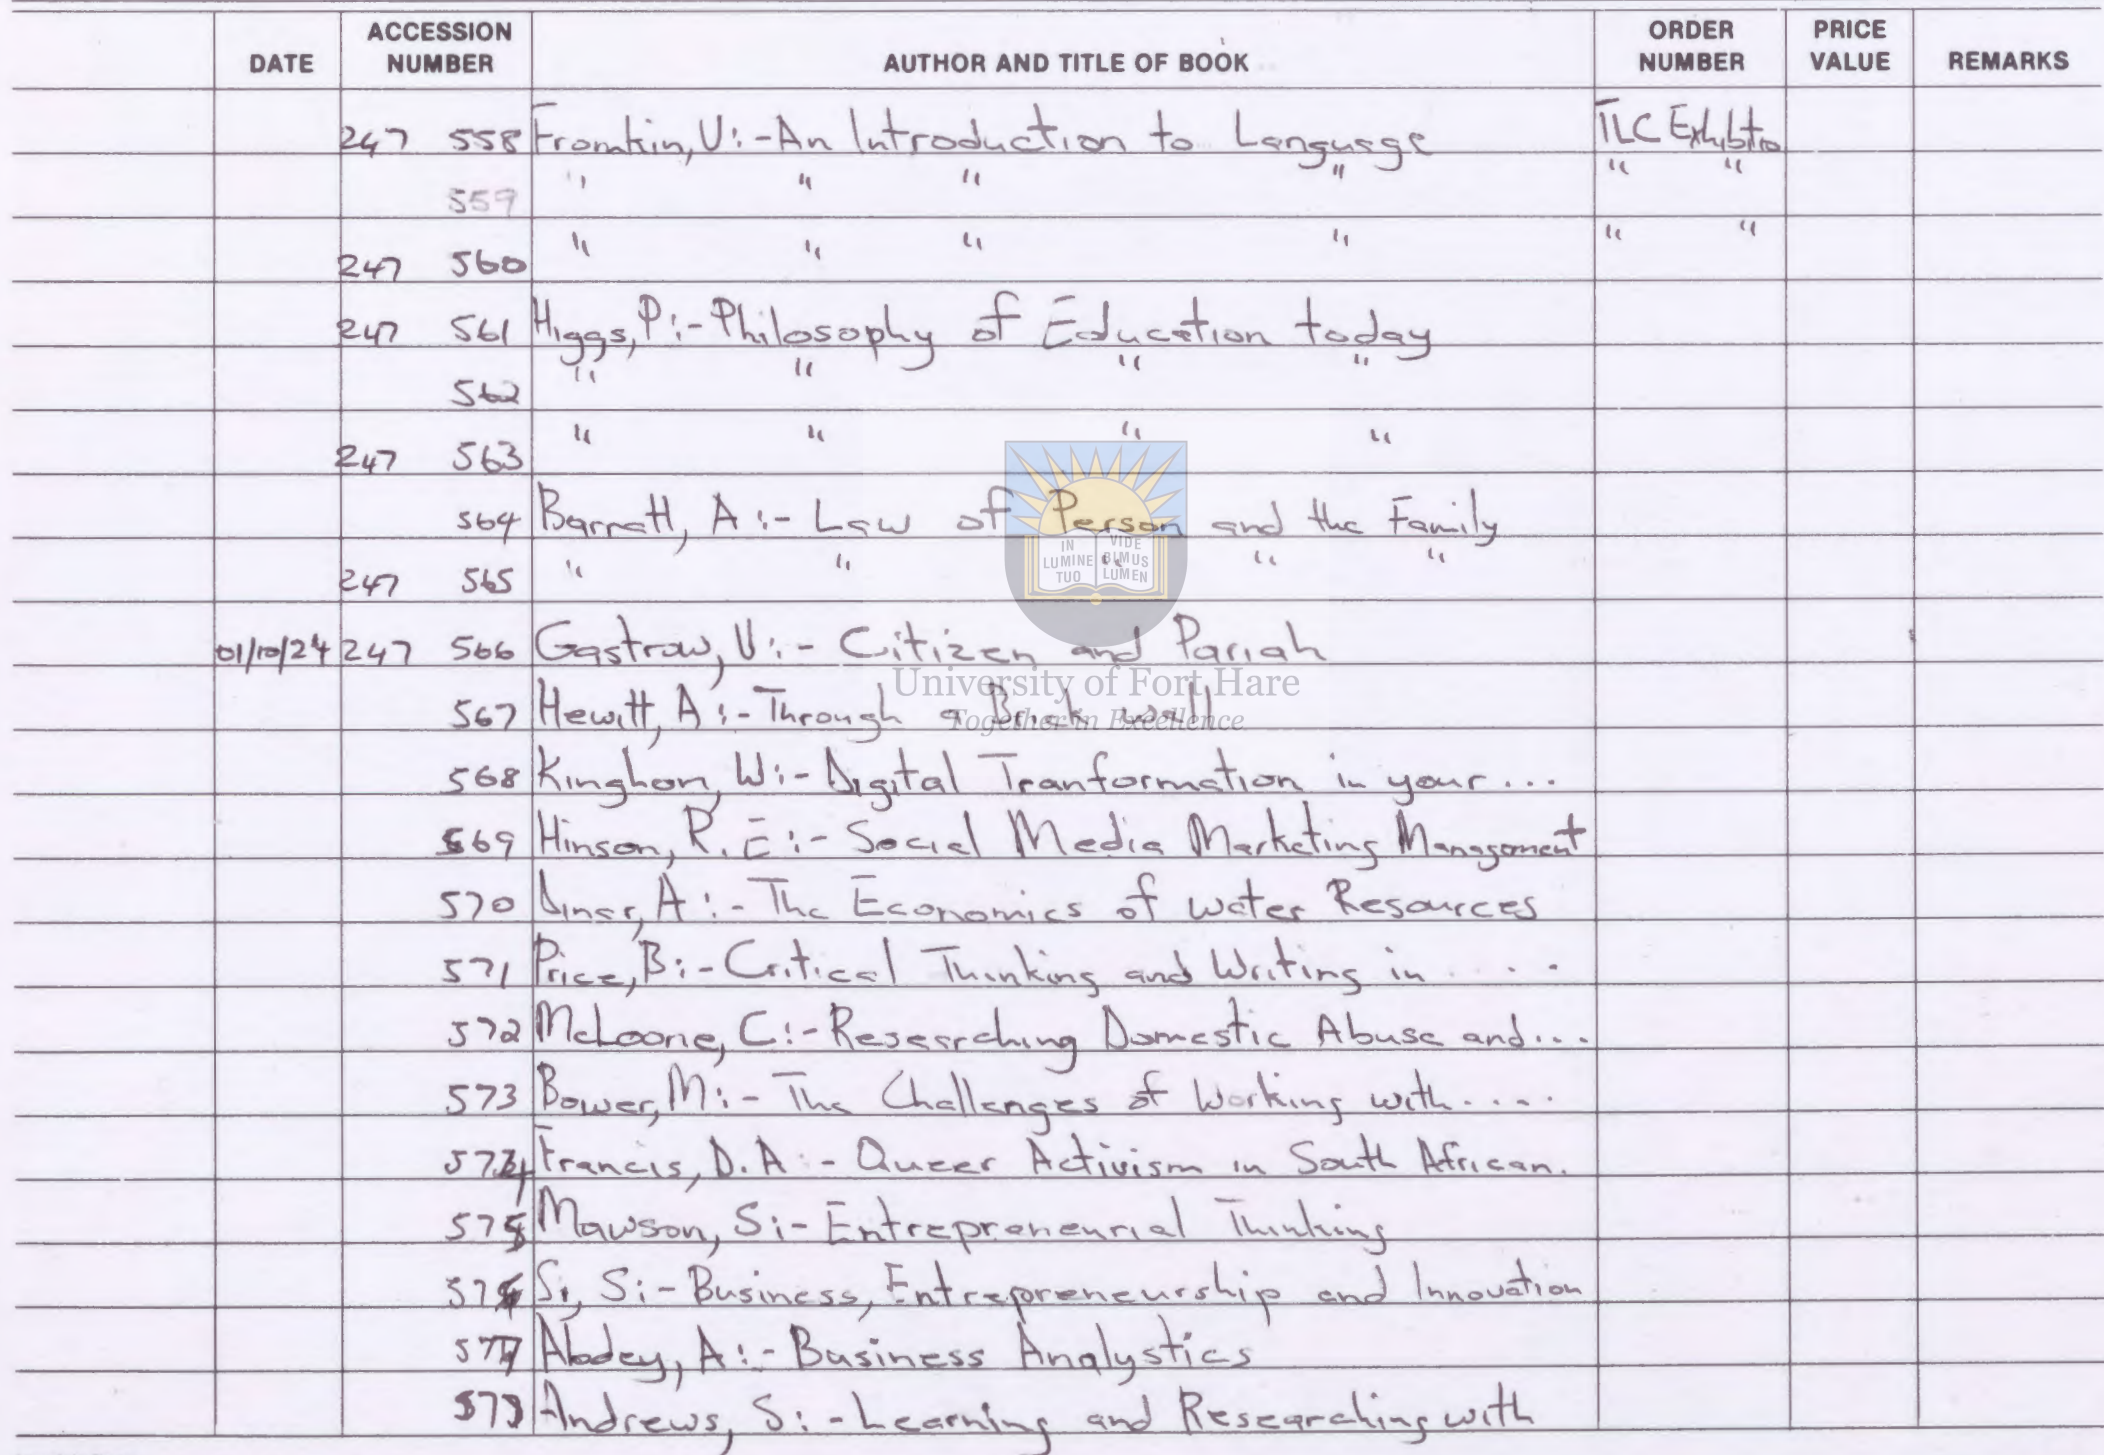 DATE ACCESSION NUMBER AUTHOR AND TITLE OF BOOK ORDER NUMBER PRICE VALUE REMARKS
247 558 Fromkin, V:-An Introduction to Language TLC Exhibitio
559 " " " " " "
247 560 " " " " " "
247 561 Higgs, P:-Philosophy of Education today
562 " " " "
247 563 " " " "
564 Barratt, A:- Law of Person and the Family
247 565 " " " " "
IN LUMINE TUO VIDE BIMUS LUMEN
01/10/24 247 566 Gastrow, V:- Citizen and Pariah
University of Fort Hare
567 Hewitt, A:-Through a Brick wall
Together in Excellence
568 Kinghorn, W:- Digital Tranformation in your ...
569 Hinson, R.E:- Social Media Marketing Management
570 Dinar, A:- The Economics of water Resources
571 Price, B:-Critical Thinking and Writing in ....
572 McLoone, C:-Researching Domestic Abuse and...
573 Bower, M:- The Challenges of Working with....
574 Francis, D.A:- Queer Activism in South African.
575 Mawson, S:- Entrepreneurial Thinking
576 Si, S:-Business, Entrepreneurship and Innovation
577 Abdey, A:- Business Analystics
578 Andrews, S:-Learning and Researching with